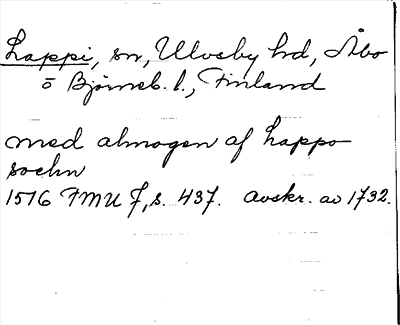 Lappi, sn, Ulvsby hd, Åbo
o Björneb. l., Finland
med almogen af Lappo
sochn
1516 FMU 7, s. 437. Avskr. av 1732.